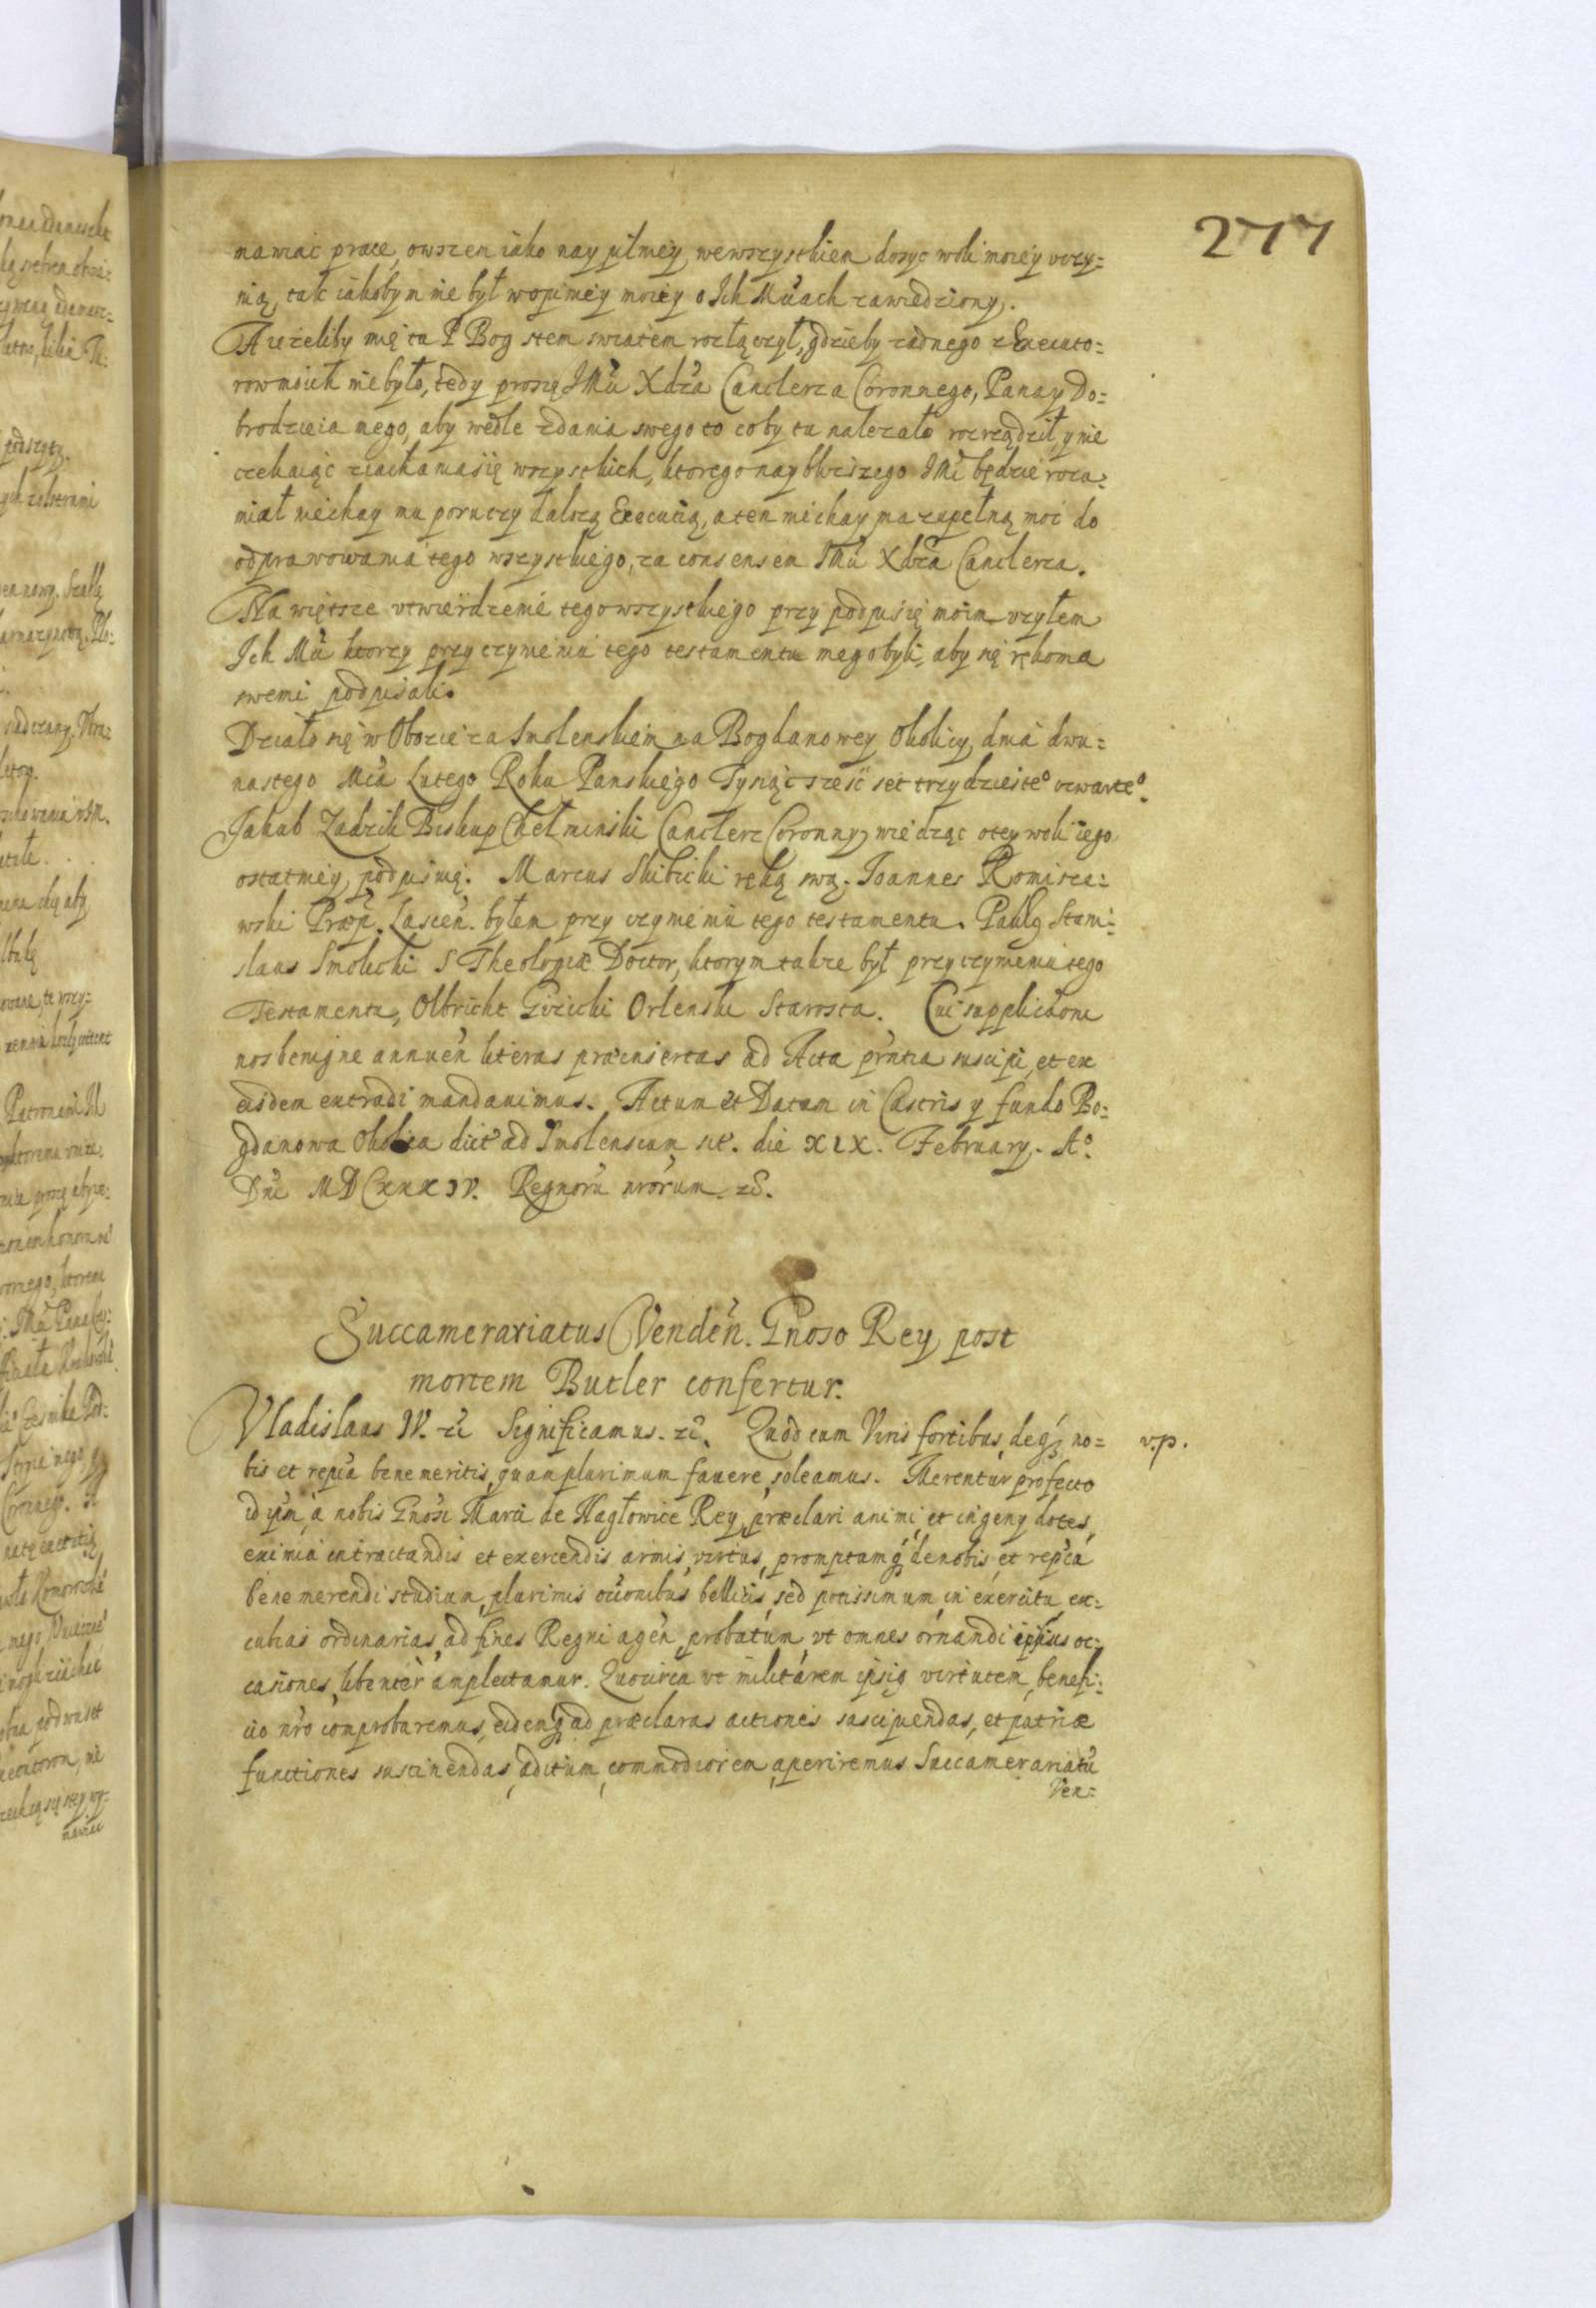 277
nawiać prace, owszem iako nay pilniey wewszystkiem dosyc woli moiey vczy=
nią, tak iakobym nie był w opiniey moiey o Ich Mciach zawiedziony.
A ieżeliby mię tu P Bog stem swiatem rozłączył, gdzieby żadnego z Executo=
row moich nie było, tedy proszę IMci Xdza Canclerza Coronnego, Pana y Do=
brodzieia mego, aby wedle zdania swego to co by tu nalezało rozrządził y nie
czekaiąc ziachania się wszystkich, ktorego naybliszszego IMci będzie rozu=
miał niechay mu poruczy dalszą Executią, a ten niechay ma zupełną moc do
odprawowania tego wszystkiego, za consensem IMci Xdza Canclerza.
Na większe vtwierdzenie tego wszystkiego przy podpisię moim vżyłem
Ich Mci ktorzy przy czynieniu tego testamentu mego byli, aby się rękoma
swemi podpisali.
Działo się w Obozie za Smolenskiem na Bogdanowey Okolicy, dnia dwu=
nastego Mca Lutego Roku Panskiego Tysiąc szesć set trzydziesteo czwarteo.
Jakub Zadzik Biskup Chełminski Canclerz Coronny, wiedząc o tey woli iego
ostatniey podpisuię. Marcus Skibicki ręką swą. Joannes Romisze=
wski Præp. Lascen. byłem przy czynieniu tego testamentu. Paulus Stani=
slaus Smolicki S Theologiæ Doctor, ktorym takze był przy czynieniu tego
Testamentu, Olbricht Giżicki Orlenski Starosta. Cui supplicationi
nos benigne annuen literas præinsertas ad Acta pntia suscipi, et ex
eisdem extradi mandauimus. Actum et Datum in Castris y fundo Bo=
gdanowa Okolica dict ad Smolenscum sit. die XIX. February. Ao
Dni MDCXXXIV. Regnoru nrorum. zc.
Succamerariatus Venden. Gnoso Rey post
mortem Butler confertur.
Vladislaus IV. zc Significamus. zc. Quod cum Viris fortibus, deq no=
v.p.
bis et repca bene meritis, quam plurimum fauere, soleamus. Merentur profecto
id ipm a nobis Gnosi Marci de Nagłowice Rey, præclari animi, et ingeny dotes,
eximia in tractandis et exercendis armis, virtus, promptumq de nobis, et repca
bene merendi studium, plurimis occionibus bellicis, sed potissimum, in exercitu, ex=
cubias ordinarias, ad fines Regni agen, probatum, vt omnes ornandi ipsius oc=
casiones, libenter amplectamur. Quocirca vt militarem ipsius virtutem, benefi=
cio nro comprobaremus, eidemq ad præclaras actiones suscipiendas, et patriæ
functiones sustinendas, aditum, commodiorem, aperiremus Succamerariatu
Ven=